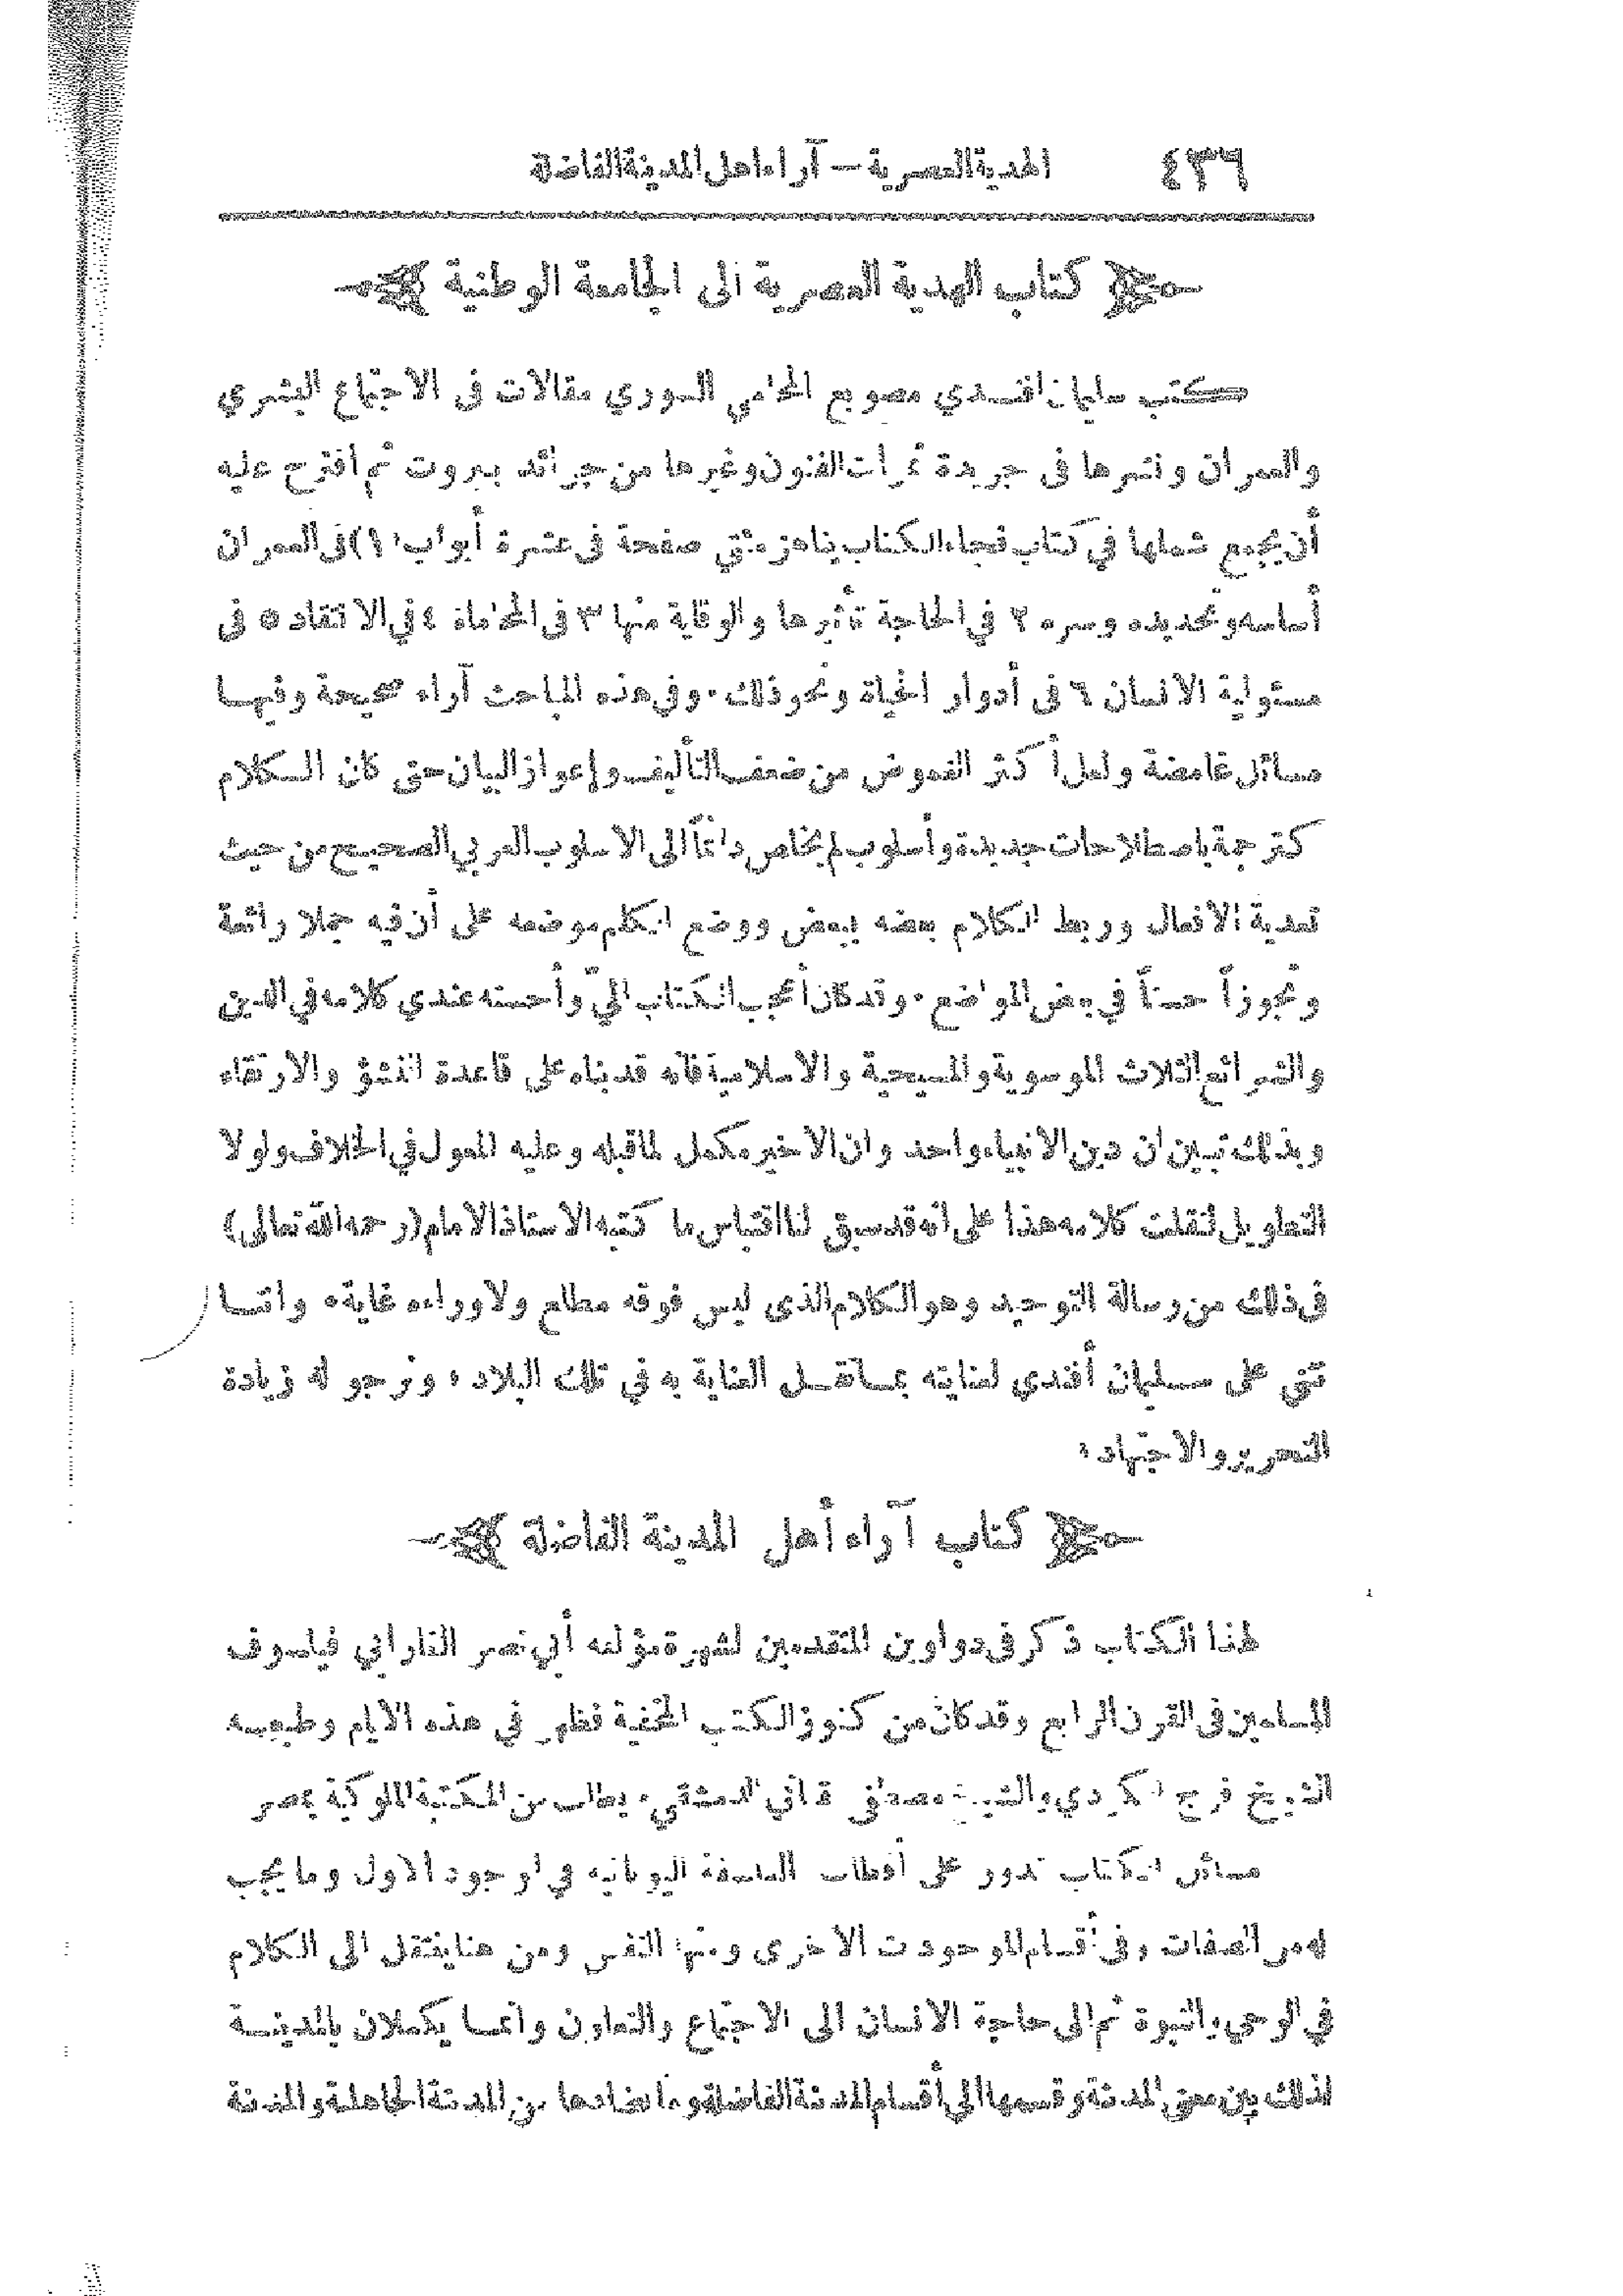 ٤٣٦ الهدية العصرية — آراء أهل المدينة الفاضلة
كتاب الهدية العصرية الى الجامعة الوطنية
كتب سليمان افندي مصوبع المحامي السوري مقالات في الاجتماع البشري
والعمران ونشرها في جريدة ثمرات الفنون وغيرها من جرائد بيروت ثم اقترح عليه
أن يجمع شملها في كتاب فجاء الكتاب يناهز مئتي صفحة في عشرة أبواب (١) في العمران
أساسه وتحديده وسره ٢ في الحاجة تأثيرها والوقاية منها ٣ في المحاماة ٤ في الانتقاد ٥ في
مسئولية الانسان ٦ في أدوار الحياة ونحو ذلك . وفي هذه المباحث آراء صحيحة وفيها
مسائل غامضة ولعل أكثر الغموض من ضعف التأليف وإعواز البيان حتى كان الكلام
كترجمة باصطلاحات جديدة وأسلوب لم يخلص دائماً الى الاسلوب العربي الصحيح من حيث
تعدية الافعال وربط الكلام بعضه ببعض ووضع الكلم موضعه على أن فيه جملا رائعة
وتجوزاً حسناً في بعض المواضع . وقد كان أعجب الكتاب اليّ وأحسنه عندي كلامه في الدين
والشرائع الثلاث الموسوية والمسيحية والاسلامية فانه قد بناه على قاعدة النشؤ والارتقاء
وبذلك تبين ان دين الانبياء واحد وان الاخير مكمل لما قبله وعليه المعول في الخلاف ولولا
التطويل لنقلت كلامه هذا على انه قد سبق لنا اقتباس ما كتبه الاستاذ الامام (رحمه الله تعالى)
في ذلك من رسالة التوحيد وهو الكلام الذي ليس فوقه مطلع ولا وراءه غاية . واننا
نثني على سليمان أفندي لعنايته بما تقل العناية به في تلك البلاد ، ونرجو له زيادة
التحرير والاجتهاد .
كتاب آراء أهل المدينة الفاضلة
لهذا الكتاب ذكر في دواوين المتقدمين لشهرة مؤلفه أبي نصر الفارابي فيلسوف
المسلمين في القرن الرابع وقد كان من كنوز الكتب المخفية فظهر في هذه الايام وطبعه
الشيخ فرج الكردي والشيخ مصطفى القباني الدمشقي . يطلب من المكتبة الملوكية بمصر
مسائل الكتاب تدور على أقطاب الفلسفة اليونانية في الوجود الاول وما يجب
له من الصفات وفي أقسام الموجودت الاخرى ومنها النفس ومن هنا ينتقل الى الكلام
في الوحي والنبوة ثم الى حاجة الانسان الى الاجتماع والتعاون وانما يكملان بالمدينة
لذلك بين معنى المدينة وقسمها الى أقسام المدينة الفاضلة وما يضادها من المدينة الجاهلة والمدينة